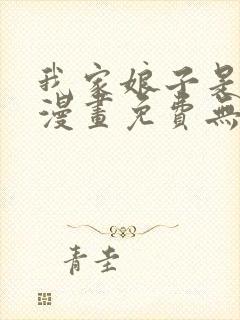 我家娘子是
漫畫免費無
青圭